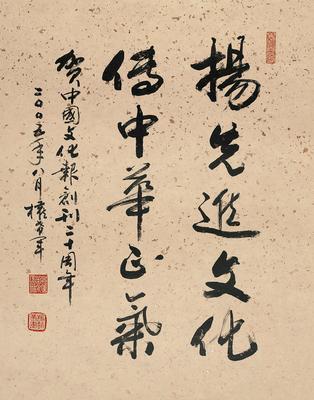 揚先進文化
傳中華正氣
賀中國文化報創刊二十周年
二〇〇五年八月